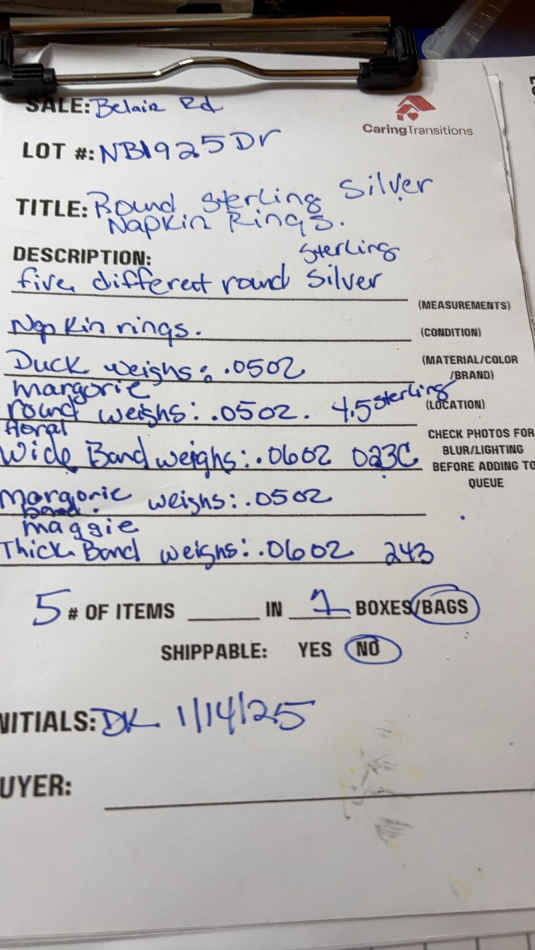 SALE: Belair Rd
CaringTransitions
LOT #: NB1925Dr
TITLE: Round Sterling Silver
Napkin Rings.
DESCRIPTION: Sterling
five different round Silver
(MEASUREMENTS)
Napkin rings.
(CONDITION)
Duck weighs: .05oz
(MATERIAL/COLOR
/BRAND)
margorie
round weighs: .05oz. 4.5 sterling
(LOCATION)
floral
Wide Band weighs: .06oz 023C
CHECK PHOTOS FOR
BLUR/LIGHTING
BEFORE ADDING TO
QUEUE
Margorie weighs: .05oz
band.
maggie
Thick Band weighs: .06oz 243
5 # OF ITEMS IN 1 BOXES/BAGS
SHIPPABLE: YES NO
NITIALS: DK 1/14/25
UYER: